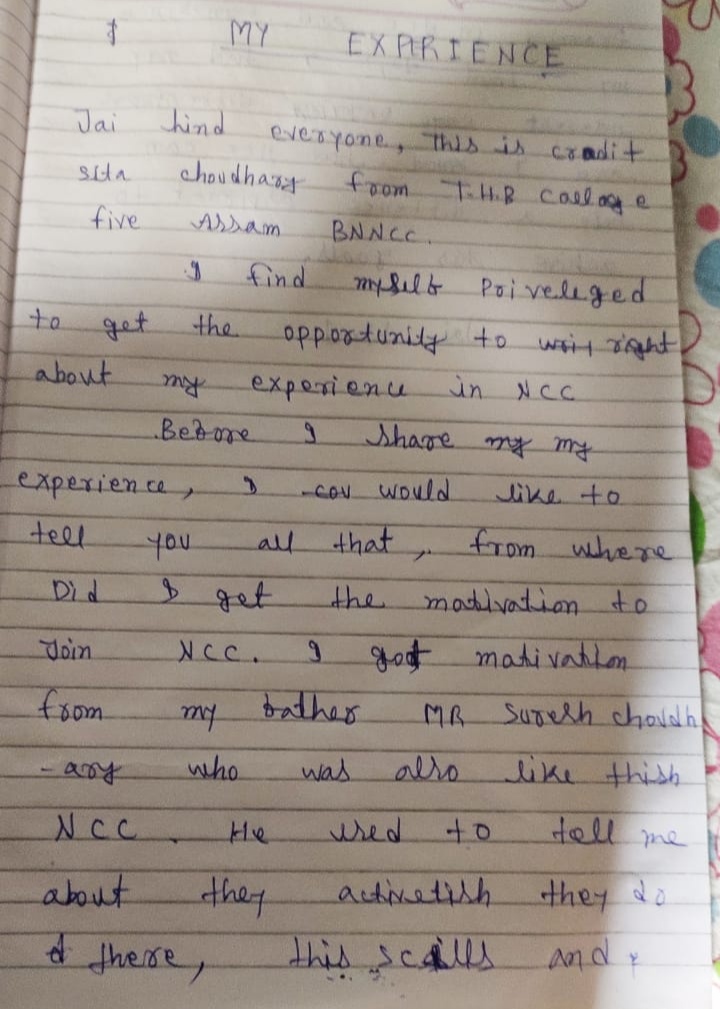 MY EXPARIENCE
Jai hind everyone, This is cradit
sita choudhary from T.H.B Callage
five Assam BNNCC.
I find myself Priveleged
to get the opportunity to right
about my experience in NCC
Before I share my my
experience, I would like to
tell you all that, from where
Did I get the mativation to
Join NCC. I got mativation
from my father MR Suresh choudh
-ary who was also like thish
NCC. He used to tell me
about they activetish they do
there, this scills and